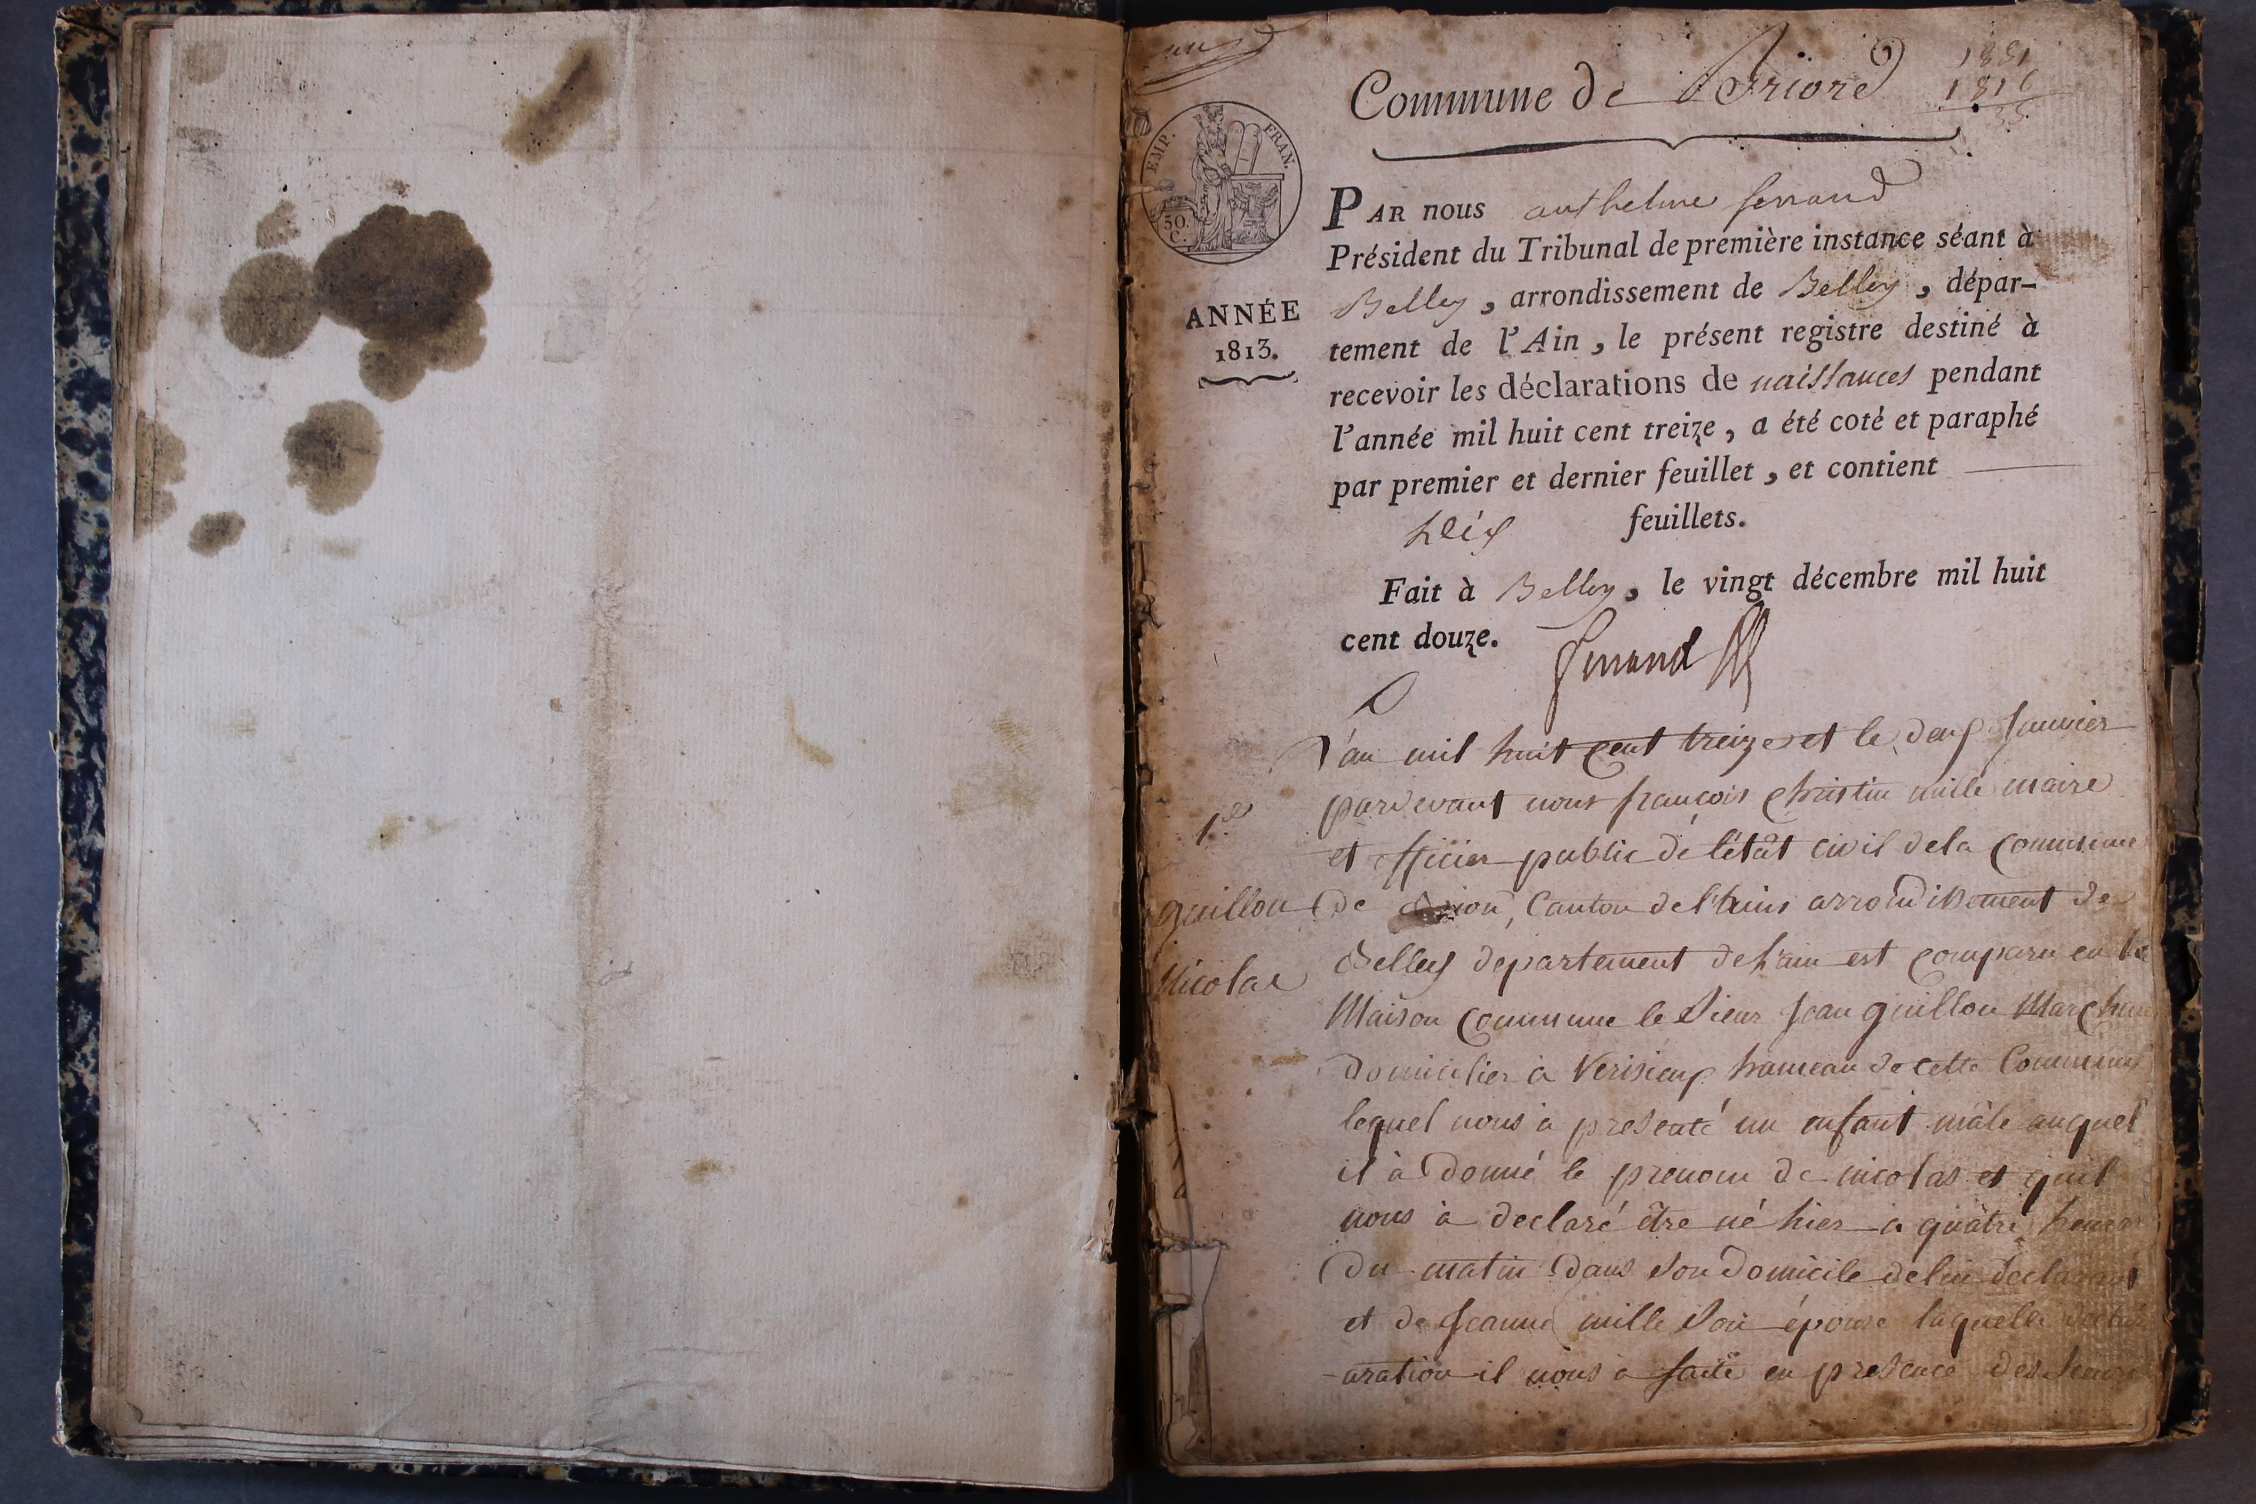 Commune de Briord
1881
1816
35
EMP. FRAN.
50.
C.
PAR nous anthelme ferrand
Président du Tribunal de première instance séant à
Belley, arrondissement de Belley, dépar-
ANNÉE
1813.
tement de l'Ain, le présent registre destiné à
recevoir les déclarations de naissances pendant
l'année mil huit cent treize, a été coté et paraphé
par premier et dernier feuillet, et contient
feuillets.
Fait à Belley, le vingt décembre mil huit
cent douze.
ferrand
L'an mil huit cent treize et le deux Janvier
pardevant nous françois Christin mille maire
1er
et officier public de l'état civil dela Commune
guillon
de Briord, Canton de l'huis arrondissement de
Nicolas
Belley departement de l'ain est comparu en la
Maison Commune le Sieur Jean guillon Marchand
domicilier à Verisieux hameau de cette Commune
lequel nous à presenté un enfant mâle auquel
il à donné le prenom de nicolas et quil
nous à declaré être né hier à quâtre heures
du matin dans son domicile delui declarant
et de Jeanne mille son épouse laquelle
aration il nous a faite en presence des